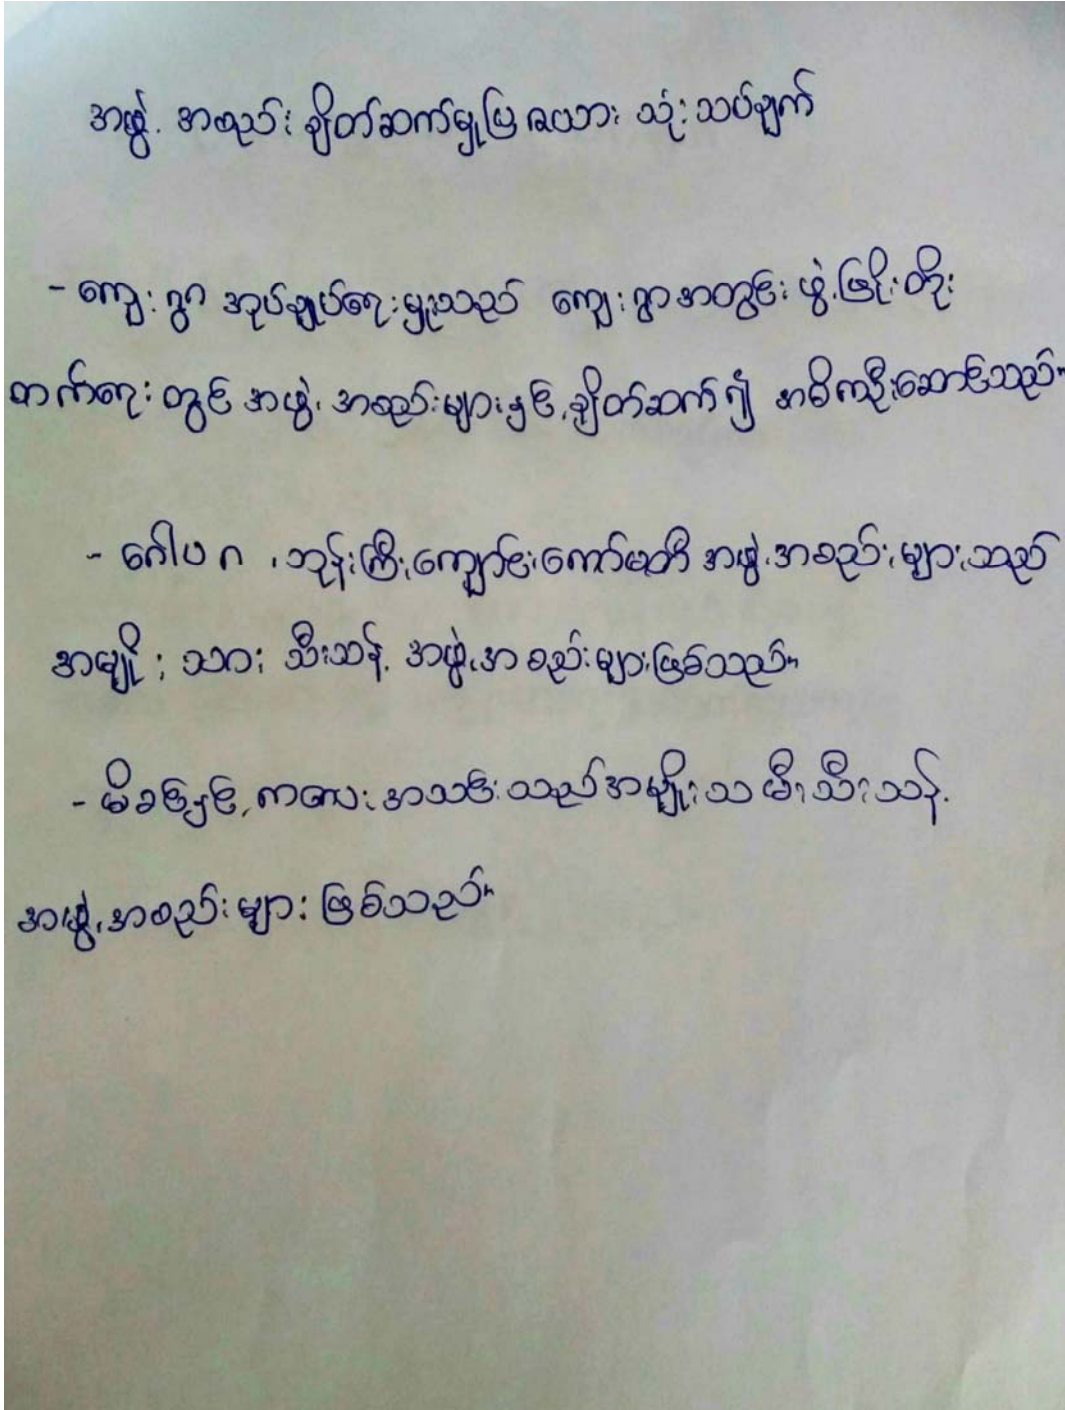 အဖွဲ့ အစည်း ချိတ်ဆက်မှုပြ ဇယား သုံးသပ်ချက်
- ကျေးရွာ အုပ်ချုပ်ရေးမှူးသည် ကျေးရွာအတွင်း ဖွံ့ဖြိုးတိုး
တက်ရေးတွင် အဖွဲ့အစည်းများနှင့်ချိတ်ဆက်၍ အဓိကဦးဆောင်သည်။
- ဂေါပက ၊ ဘုန်းကြီးကျောင်းကော်မတီ အဖွဲ့အစည်းများသည်
အမျိုးသားသီးသန့် အဖွဲ့အစည်းများဖြစ်သည်။
- မိခင်နှင့်ကလေးအသင်းသည်အမျိုးသမီးသီးသန့်
အဖွဲ့အစည်းများဖြစ်သည်။